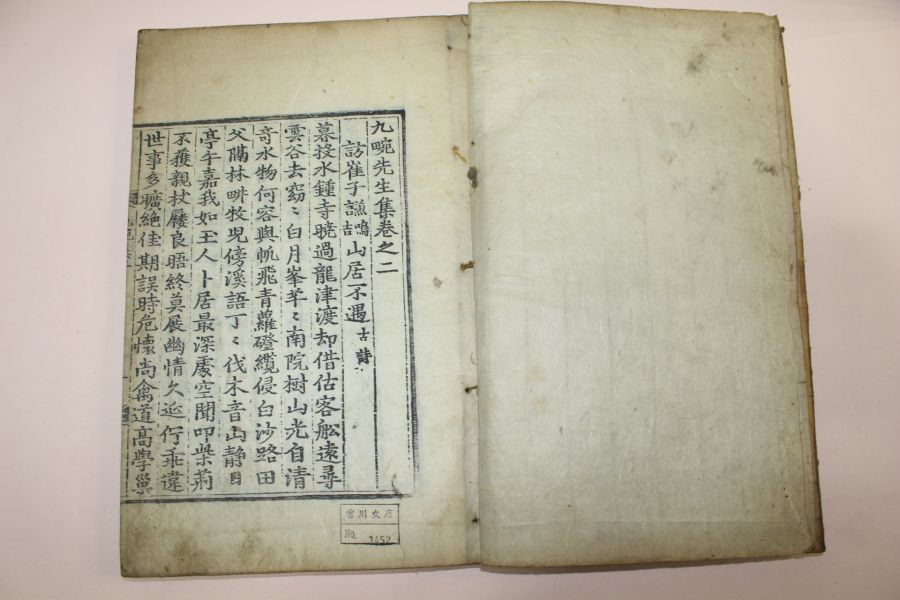 九畹先生集卷之二
訪崔子謙鳴吉山居不遇古詩
暮投水鍾寺曉過龍津渡却借估客舩遠尋
雲谷去窈〻白月峯芊〻南院樹山光自清
奇水物何容與帆飛青蘿磴纜侵白沙路田
父隔林畊牧児傍溪語丁〻伐木音山静日
亭午嘉我如玉人卜居最深處空聞叩柴荊
不獲親杖屨良晤終莫展幽情久延佇乖違
世事多曠絶佳期誤時危懷尚禽道高學巢
雲川文庫
No. 3452